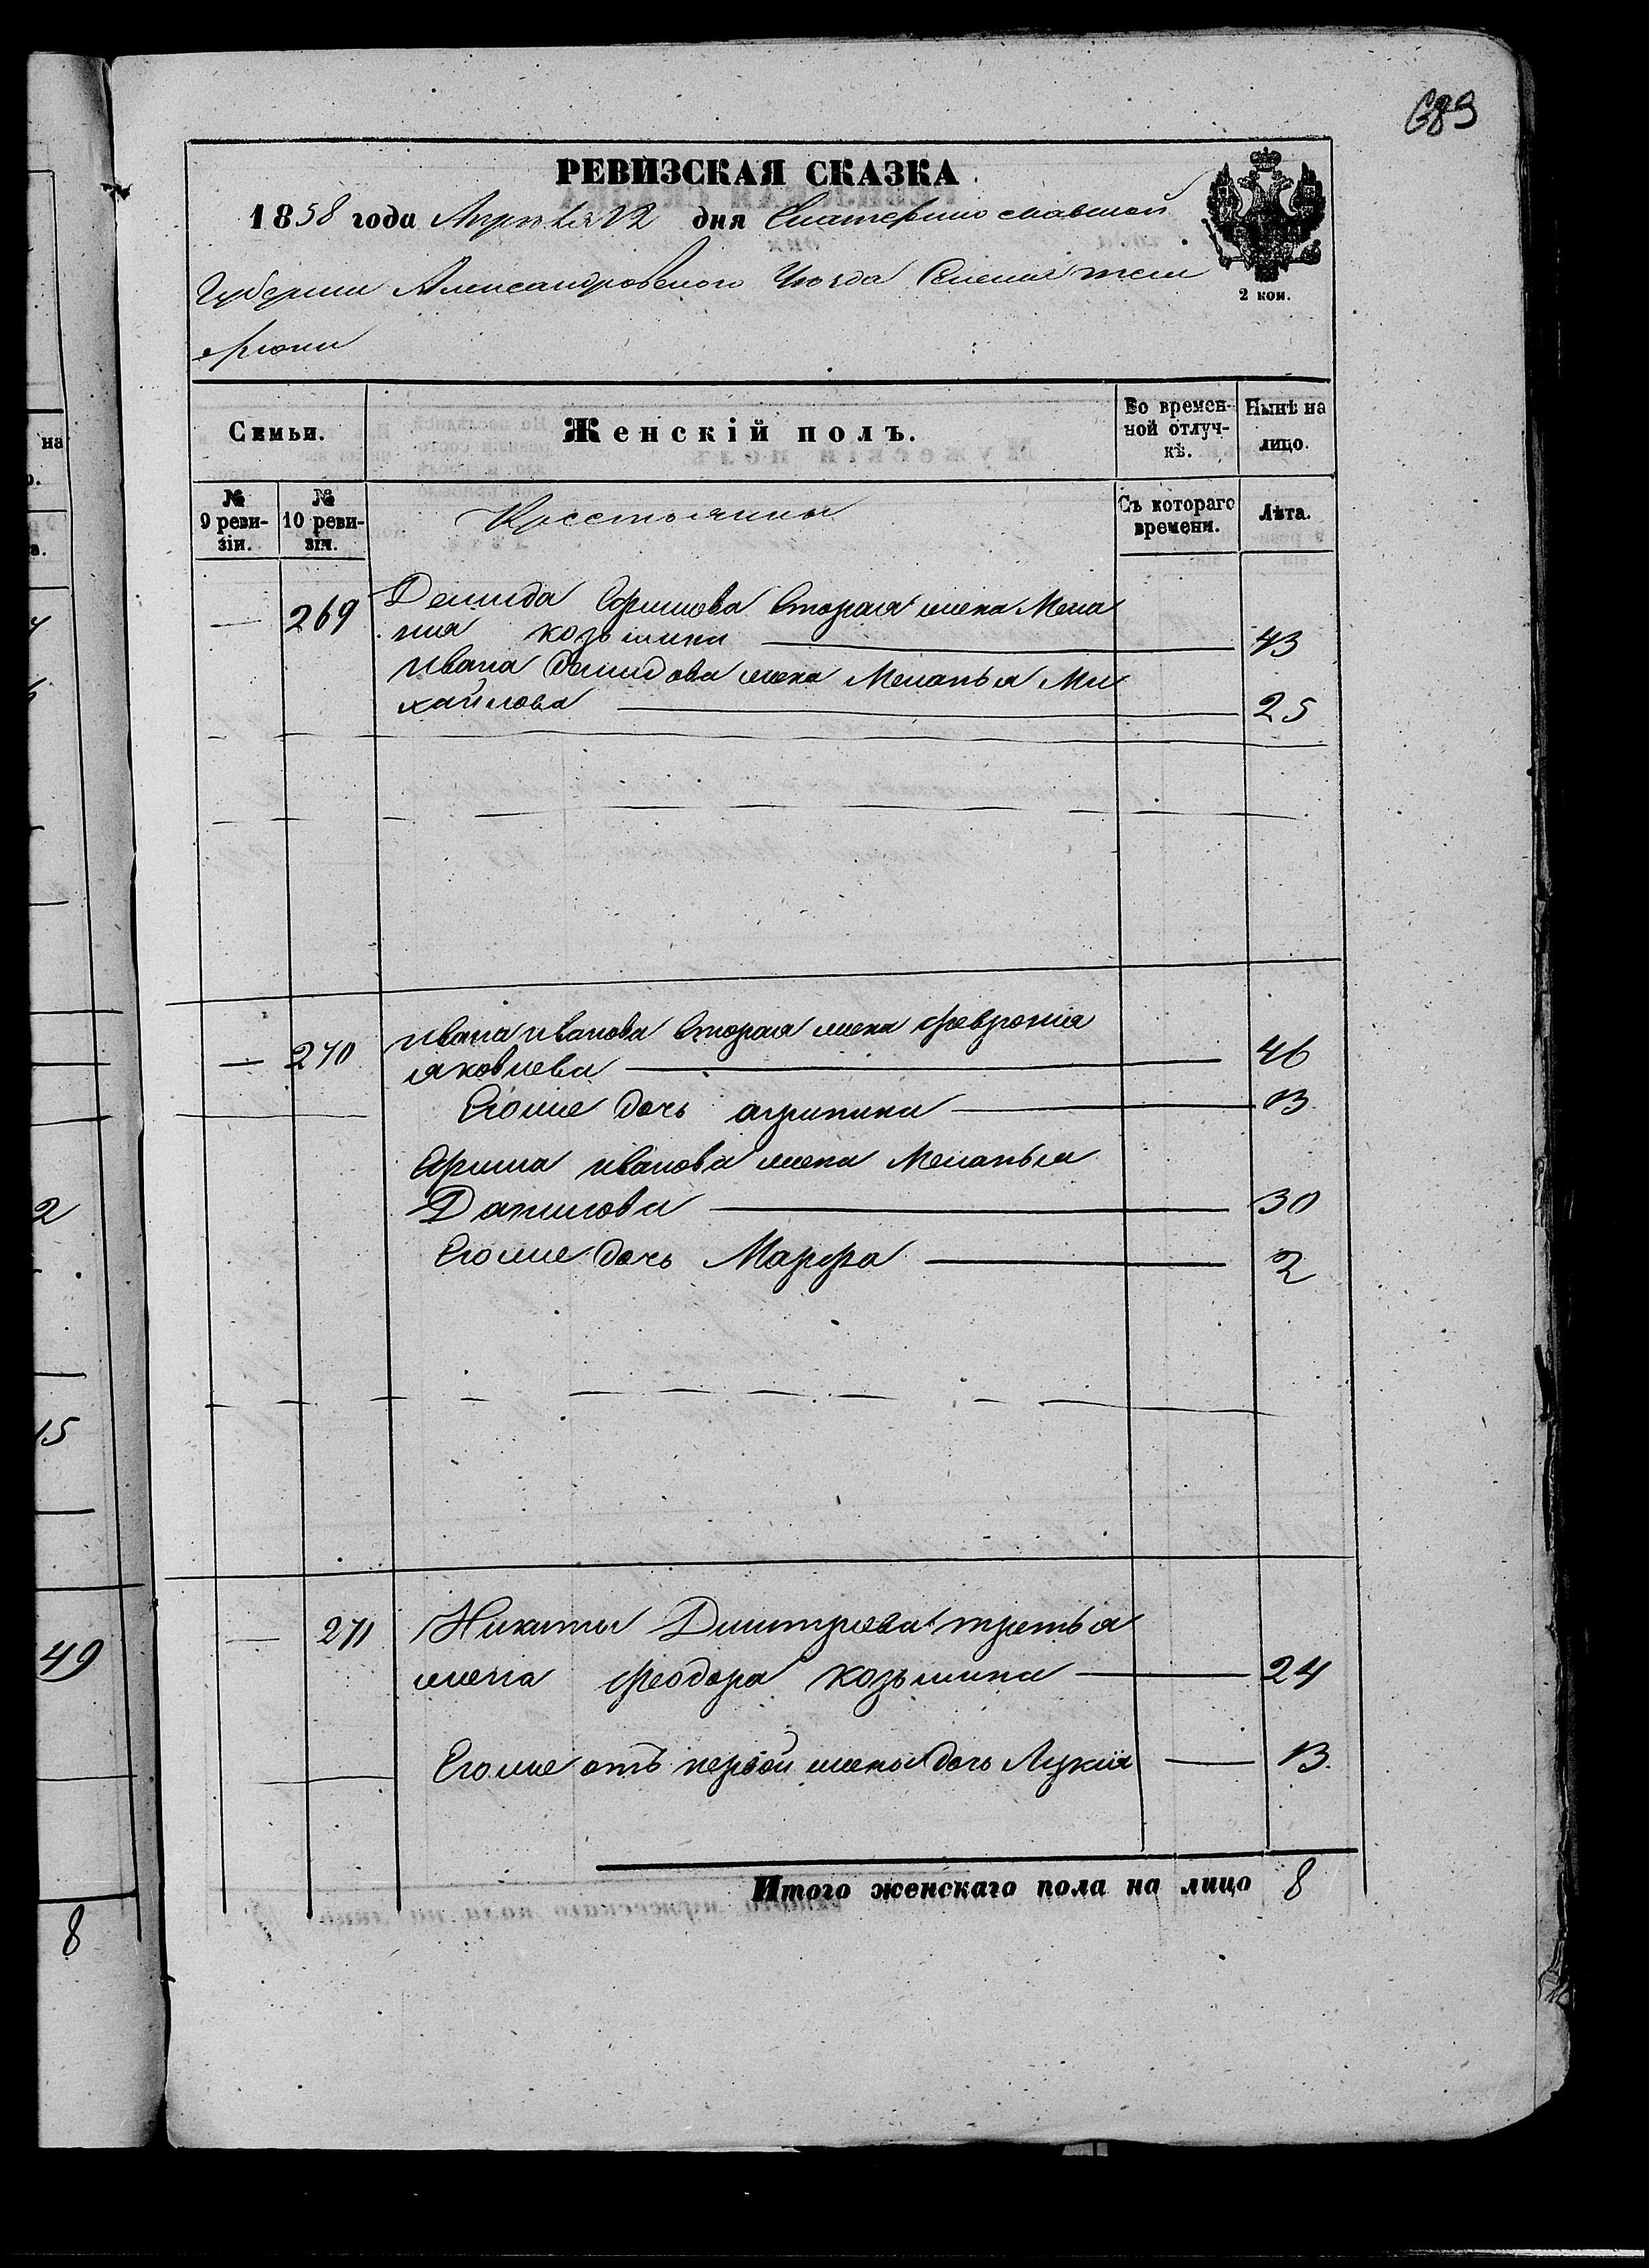 689
РЕВИЗСКАЯ СКАЗКА
1858 года Апреля 12 дня Екатеринославской
Губернии Александровского Уезда Селения Теме
рюки
2 коп.
Семьи. Женскій полъ. Во времен-ной отлуч-кѣ. Нынѣ на лицо.
№ 9 реви-зіи. № 10 реви-зіи. Крестьянины Съ котораго времени. Лѣта.
— 269 Демида Ефимова вторая жена Мела
ния козьмина — 43
Ивана Демидова жена Меланья Ми
хайлова — 25
— 270 Ивана иванова вторая жена феврония
яковлева — 46
Егоже дочь агрипина — 13
Ефима иванова жена Меланья
Данилова — 30
Егоже дочь Марфа — 2
— 271 Никиты Дмитриева третья
жена феодора козьмина — 24
Егоже отъ первой жены дочь Лукия — 13.
Итого женскаго пола на лицо 8
на
2
15
49
8